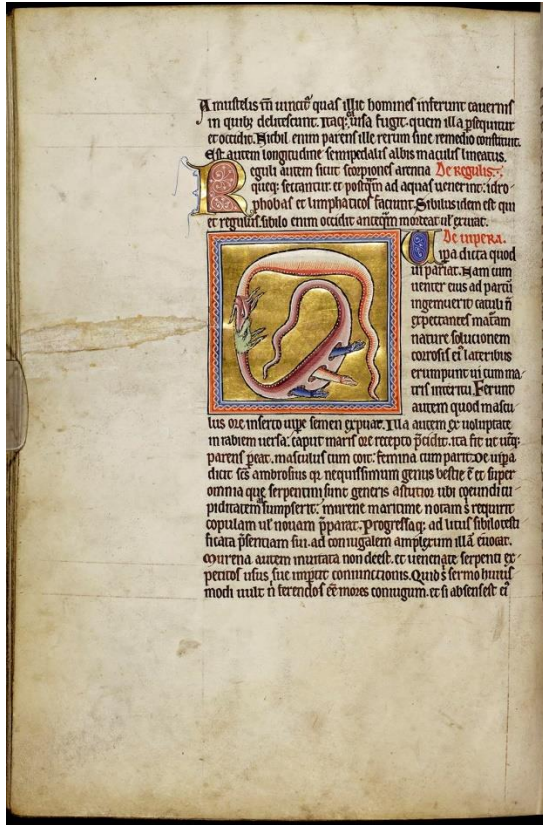 A mustelis tn̄ uincit᷑ quas illic homines inferunt cauernis
in quib; delitescunt. Itaq; uisa fugit. quem illa ꝑsequitur
et occidit. Nichil enim parens ille rerum sine remedio constituit.
Est autem longitudine semipedalis albis maculis lineatus.
Reguli autem sicut scorpiones arentia De regulis.
queq; sectantur. et postq̄m ad aquas uenerint. idro-
phobas et limphaticos faciunt. Sibilus idem est qui
et regulus. sibilo enim occidit anteq̄m mordeat ul̓ exurat.
De uipera.
Vip̄a dicta quod
ui pariat. Nam cum
uenter eius ad partū
ingemuerit catuli n̄
expectantes maturam
nature solucionem
corrosis ei᷒ lateribus
erumpunt ui cum ma-
tris interitu. Ferunt
autem quod mascu-
lus ore inserto uipe semen expuat. Illa autem ex uoluptate
in rabiem uersa. caput maris ore recepto p̄cidit. ita fit ut ut̓q;
parens ꝑeat. masculus cum coit. femina cum parit. De uiꝑa
dicit sc̄s ambrosius qꝛ nequissimum genus bestie ē et super
omnia que serpentini sunt generis astutior ubi coeundi cu-
piditatem sumpserit. murene maritime notam s᷑ requirit
copulam ul̓ nouam p̄parat. Progressaq; ad litus sibilo testi
ficata p̄sentiam sui. ad coniugalem amplexum illā euocat.
Murena autem inuitata non deest. et uenenate serpenti ex-
petitos usus sue imꝑtit coniunctionis. Quid s᷑ sermo huius
modi uult n̄ ferendos eē mores coniugum. et si absens est ei᷒